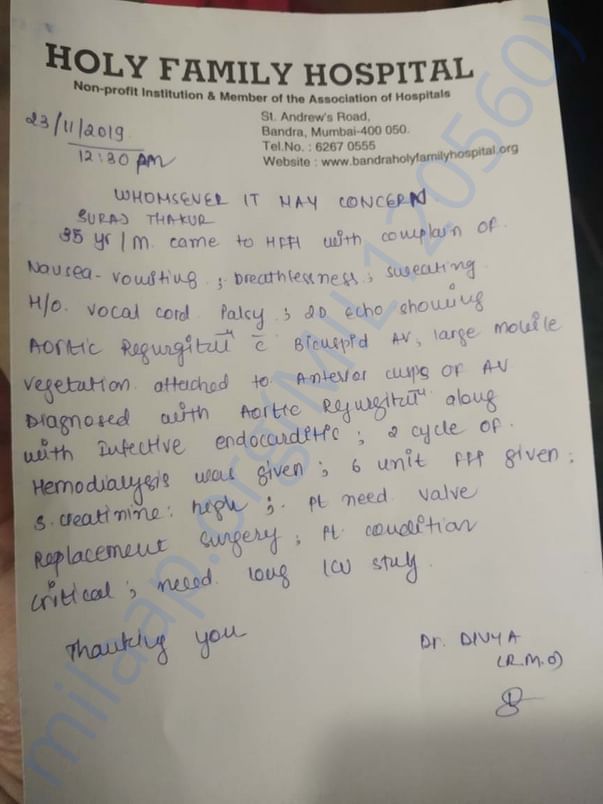 HOLY FAMILY HOSPITAL
Non-profit Institution & Member of the Association of Hospitals
St. Andrew's Road,
Bandra, Mumbai-400 050.
Tel.No. : 6267 0555
Website : www.bandraholyfamilyhospital.org
23/11/2019
12:30 pm
WHOMSEVER IT MAY CONCERN
SURAJ THAKUR
35 yr/M. came to HFH with complain of.
Nausea-vomiting ; breathlessness ; sweating.
H/O. vocal cord Palsy ; 2D echo showing
Aortic Regurgitⁿ c̄ Bicuspid AV, large mobile
vegetation attached to Anterior cups of AV
Diagnosed with Aortic Regurgitⁿ along
with Infective endocarditic ; 2 cycle of.
Hemodialysis was given ; 6 unit FFP given ;
S. creatinine: high ; Pt need valve
Replacement surgery ; Pt. condition
critical ; need long ICU stay.
Thanking you
Dr. DIVYA
(R.M.O)
milaap.org(MIL120560)